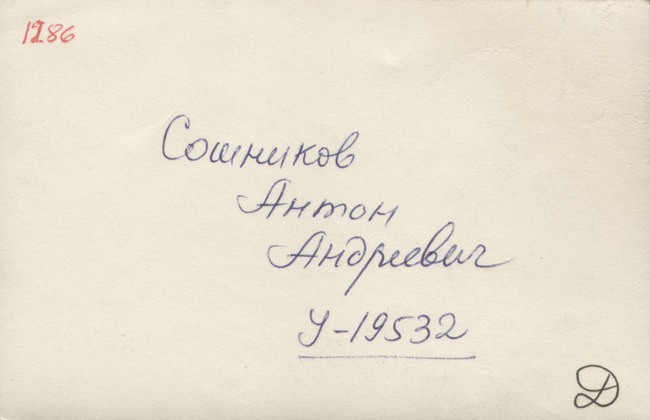 1286
Сошников
Антон
Андреевич
У-19532
Д